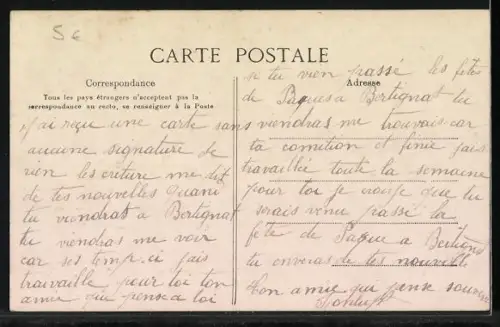 5 €
CARTE POSTALE
Correspondance
Tous les pays étrangers n'acceptent pas la
correspondance au recto, se renseigner à la Poste
j'ai reçu une carte sans
aucune signature je
vien les criture me dit
de tes nouvelles quand
tu viendrat a Bertignat
tu viendras me voir
car ses temp-ci jais
travaille pour toi ton
amie qui pense a toi
Adresse
si tu vien passé les fêtes
de Paques a Bertignat tu
viendras me trouvais car
ta comition et finie jais
travaillée toute la semaine
pour toi je croyé que tu
serais venu passé la
fête de Paque a
tu enveras de tes nouvelle
Ton amie qui pense